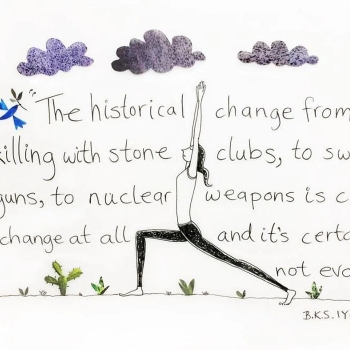 "The historical change from
killing with stone clubs, to sw
guns, to nuclear weapons is c
change at all and it's certa
not evo
B.K.S. IY